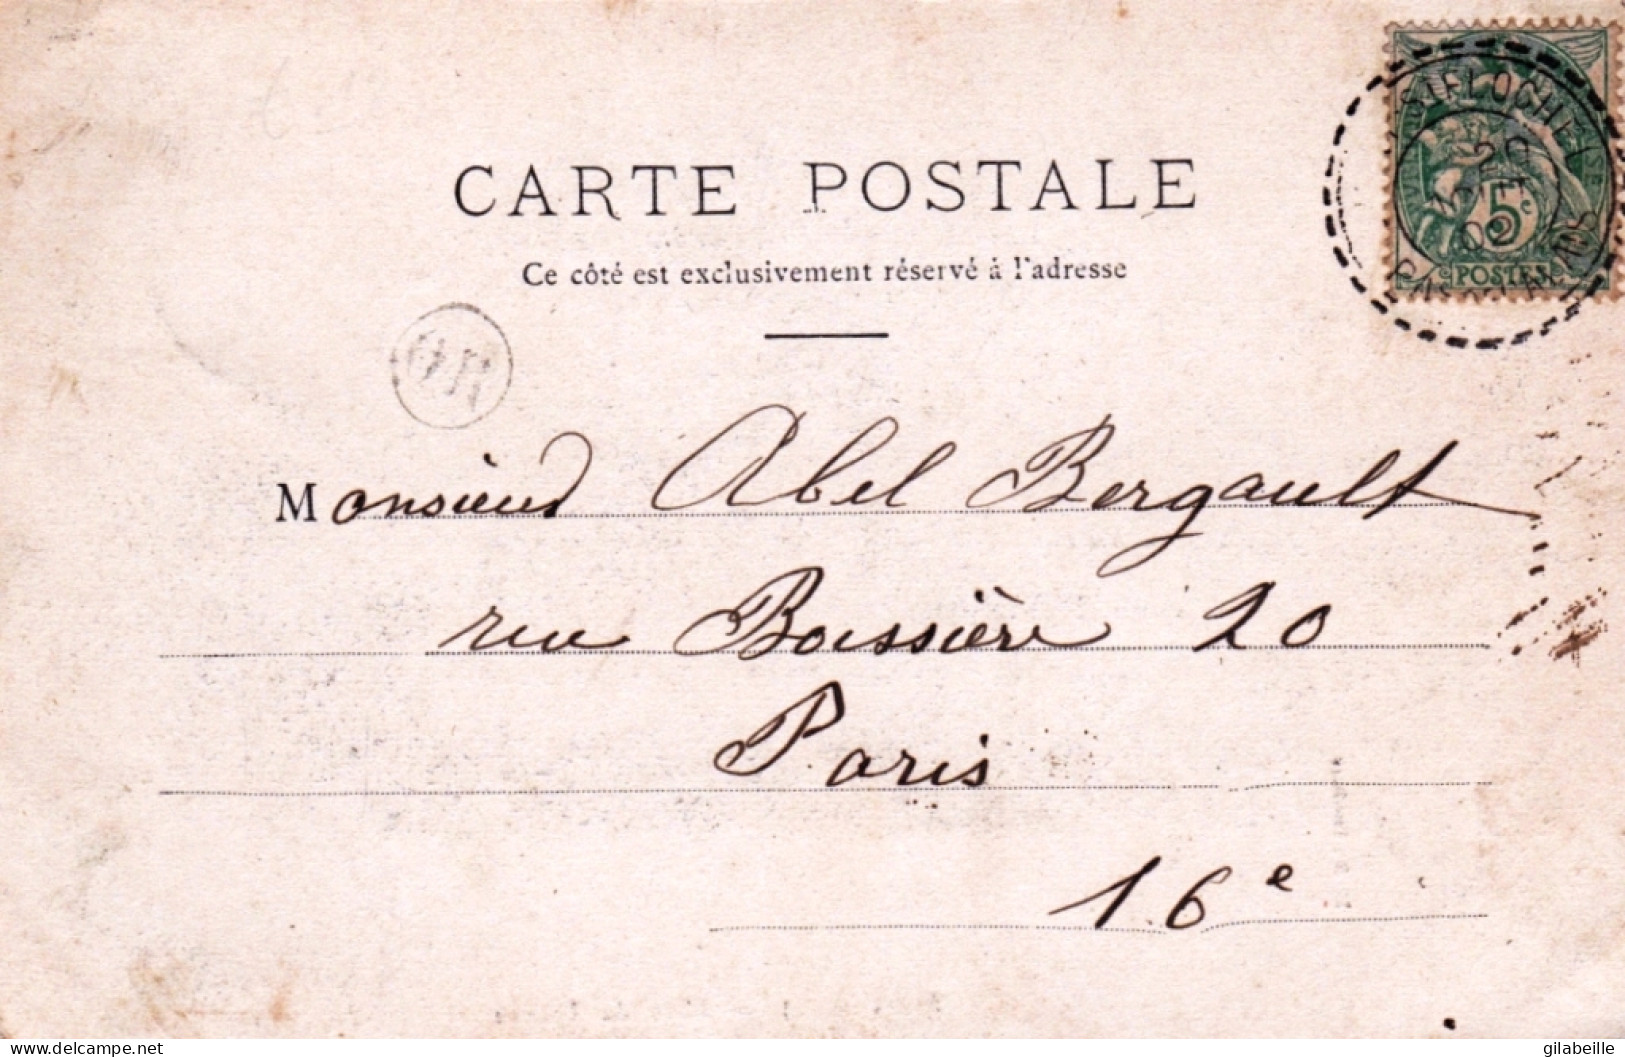 CARTE POSTALE
Ce côté est exclusivement réservé à l'adresse
5c
POSTES
02
OR
Monsieur Abel Bergault
rue Boissière 20
Paris
16e
www.delcampe.net
gilabeille